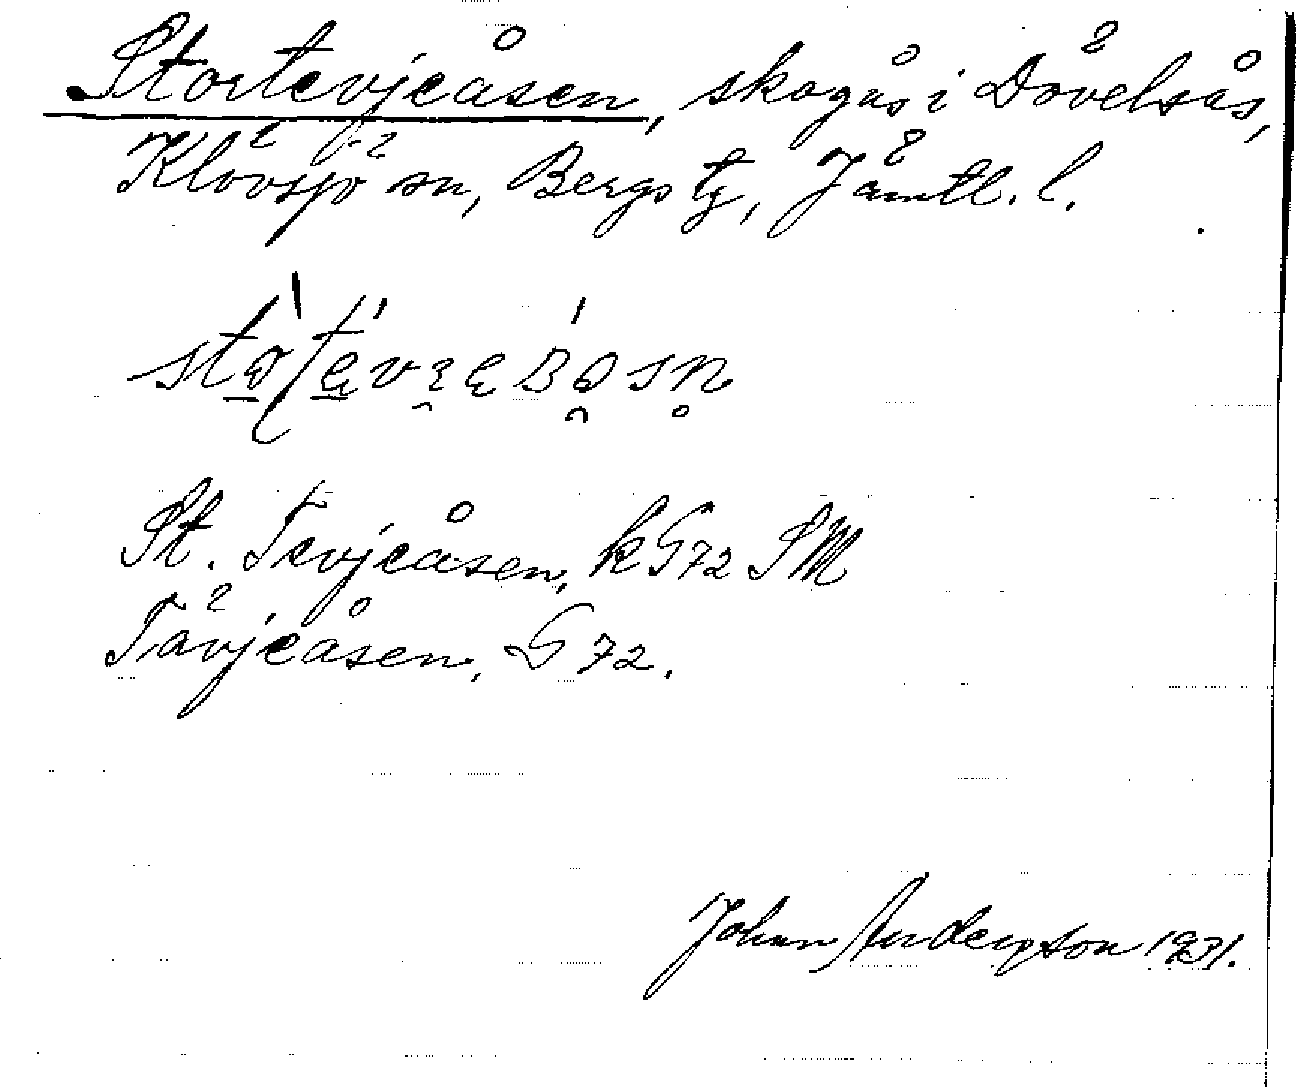 Stortevjeåsen, skogås i Dövelsås,
Klövsjö sn, Bergs tg, Jämtl. l.
St. Tevjeåsen, kG72 SM
Tävjeåsen, G72.
Johan Andersson 1931.